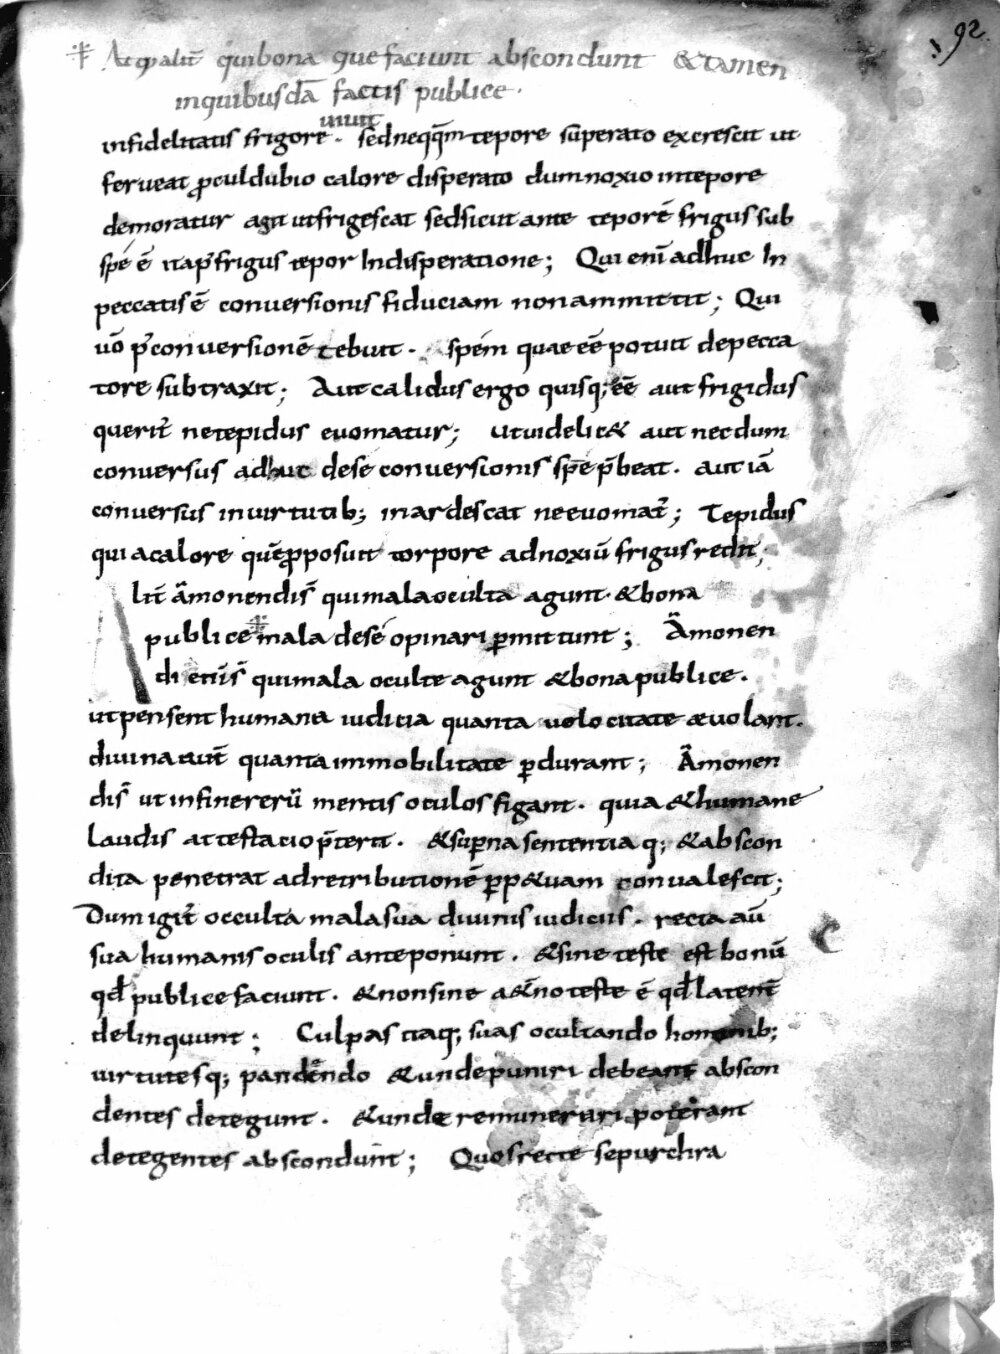 92
At qualit̃ qui bona que faciunt abscondunt & tamen
in quibusdā factis publice ·
uiuit
infidelitatis frigore · sed neqq̄m tepore superato excrescit ut
ferueat ꝓculdubio calore disperato dum noxio in tepore
demoratur agit ut frigescat sed sicut ante teporē frigus sub
spe ē ita p̄ frigus tepor In disperatione ; Qui eni adhuc In
peccatis ē conuersionis fiduciam non ammittit ; Qui
uō p̄ conuersionē tebuit · spem quae eē potuit de pecca
tore subtraxit ; Aut calidus ergo quisq; eē aut frigidus
querit̃ ne tepidus euomatur ; ut uidelic& aut necdum
conuersus adhuc de se conuersionis spē p̄beat · aut iā
conuersus in uirtutib; inardescat ne euomat̃ ; Tepidus
qui a calore quē ꝓposuit torpore ad noxiū frigus redit ;
lit̃ āmonendis̃ qui mala oculta agunt · & bona
publice mala de se opinari ꝑmittunt ; Āmonen
di enīs̃ qui mala oculte agunt & bona publice ·
ut pensent humana iudicia quanta uelocitate æuolant ·
diuina aut̃ quanta immobilitate ꝑdurant ; Āmonen
dis̃ ut in fine rerū mentis oculos figant · quia & humane
laudis attestacio p̄terit · & suꝑna sententia q; & abscon
dita penetrat ad retributionē ꝑp&uam conualescit ;
Dum igit̃ occulta mala sua diuinis iudiciis · recta aū
sua humanis oculis anteponunt · & sine teste est bonū
qđ publice faciunt · & non sine a&̃no teste ē qđ latent̃
delinquunt ; Culpas itaq; suas ocultando hominib;
uirtutes q; pandendo & unde puniri debeant abscon
dentes detegunt · & unde remunerari poterant
detegentes abscondunt ; Quos recte sepulchra